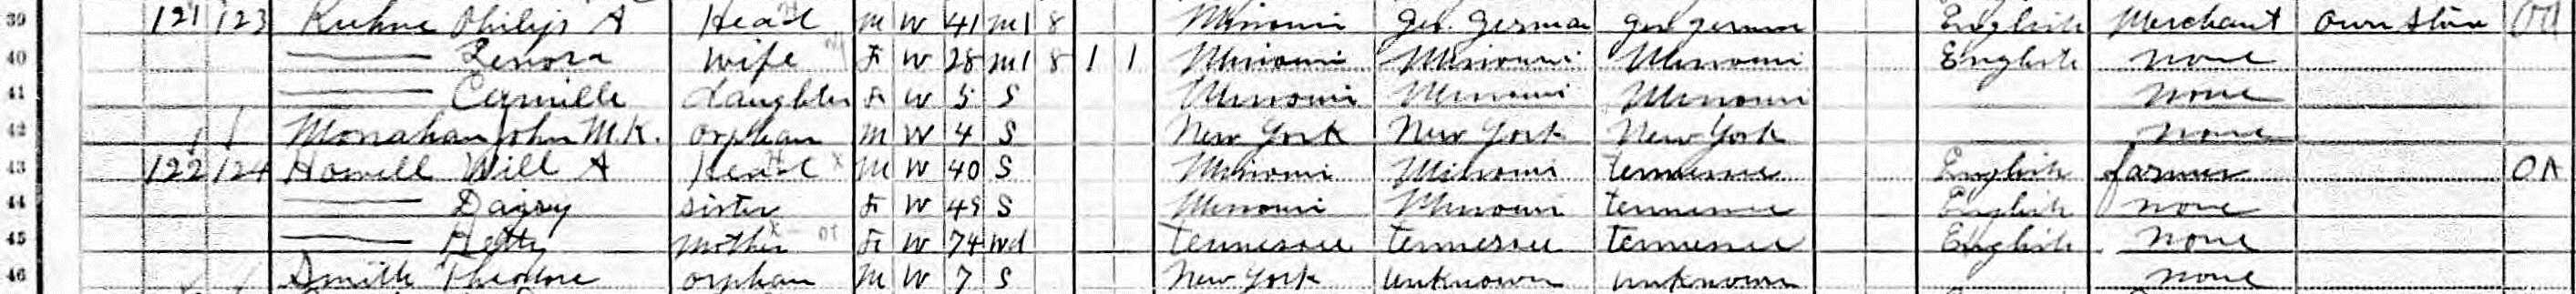 39 121 123 Kuhne Philip A Head M W 41 M1 8 Missouri Ger. German Ger German English Merchant Own Store OA
40 —— Lenora wife F W 28 M1 8 1 1 Missouri Missouri Missouri English none
41 —— Camille daughter F W 5 S Missouri Missouri Missouri none
42 Monahan John M.K. orphan M W 4 S New York New York New York none
43 122 124 Howell Will A Head M W 40 S Missouri Missouri Tennessee English farmer OA
44 —— Daisy sister F W 49 S Missouri Missouri Tennessee English none
45 —— Hetty mother F W 74 Wd Tennessee Tennessee Tennessee English none
46 Smith Theodore orphan M W 7 S New York unknown unknown none